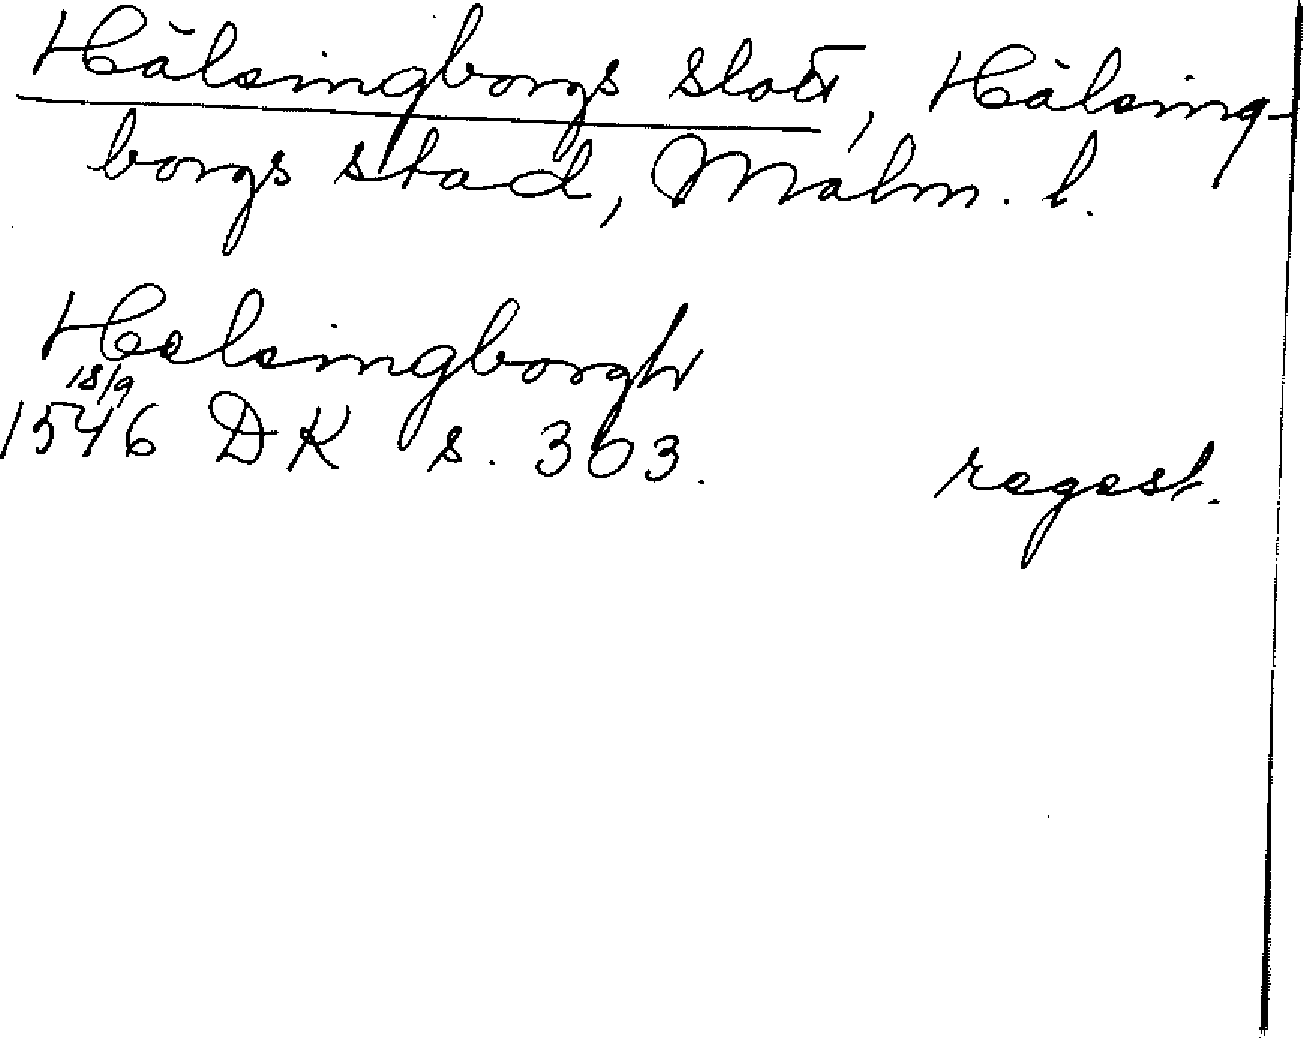 Hälsingborgs slott, Hälsing-
borgs stad, Malm. l.
Helsingborgh
18/9
1546 DK s. 303. regest.